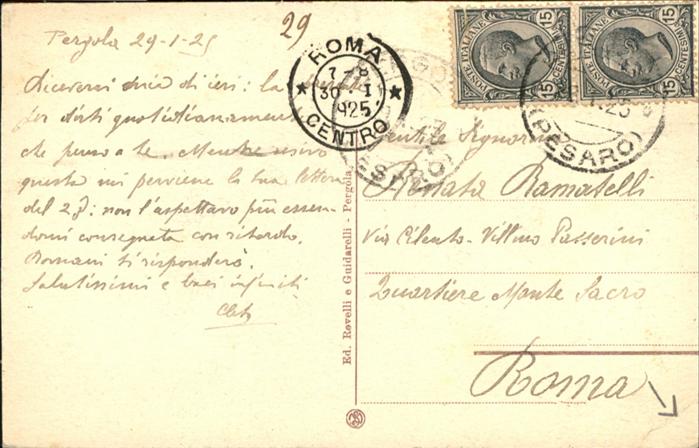 Pergola 29-1-25
29
Riceverai mia di ieri: la
per dirti quotidianamente
che penso a te. Mentre
questa mi perviene la tua lettera
del 27: non l'aspettavo più essen-
domi consegnata con ritardo.
Domani ti risponderò.
Salutissimi e baci infiniti
ROMA
7-8
30 · I
1925
CENTRO
POSTE ITALIANE
15 CENTESIMI 15
POSTE ITALIANE
15 CENTESIMI 15
(PESARO)
(PESARO)
Ed. Rovelli e Guidarelli - Pergola
Gentile Signorina
Renata Ramatelli
Via Cilento - Villino Passerini
Quartiere Monte Sacro
Roma